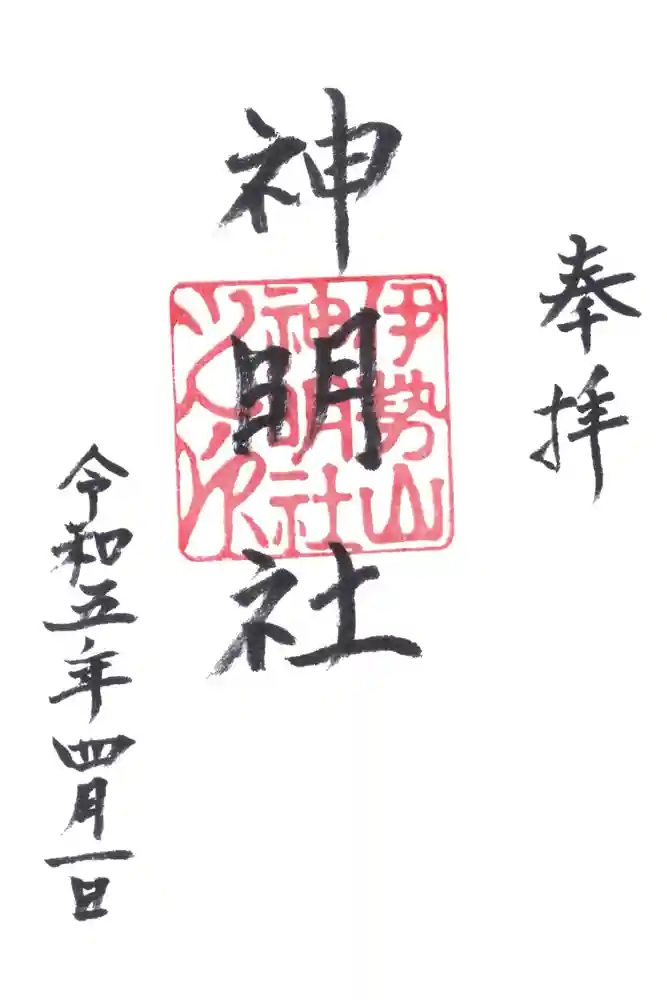 奉拝
神明社
伊勢山
神明社
令和五年四月一日